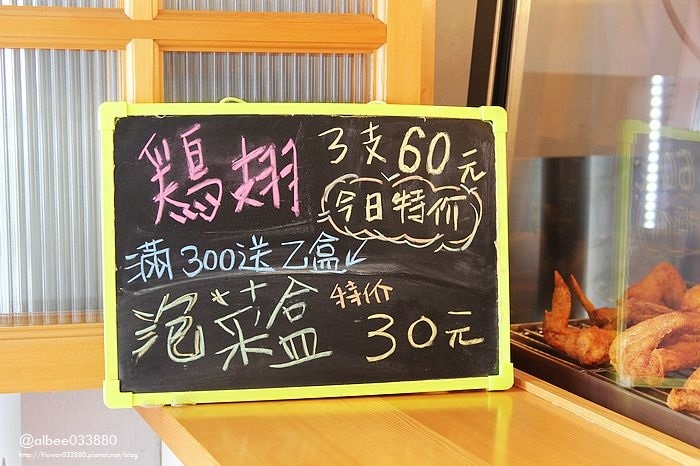 鶏翅 3支60元
今日特价
滿300送乙盒↙
泡菜盒 特价 30元
@albee033880
http://flower033880.pixnet.net/blog